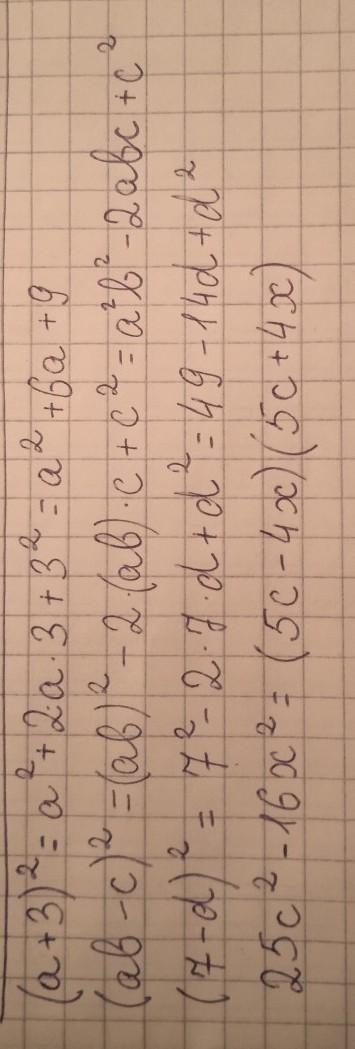 (a+3)² = a² + 2a·3 + 3² = a² + 6a + 9
(ab - c)² = (ab)² - 2·(ab)·c + c² = a²b² - 2abc + c²
(7-d)² = 7² - 2·7·d + d² = 49 - 14d + d²
25c² - 16x² = (5c - 4x)(5c + 4x)